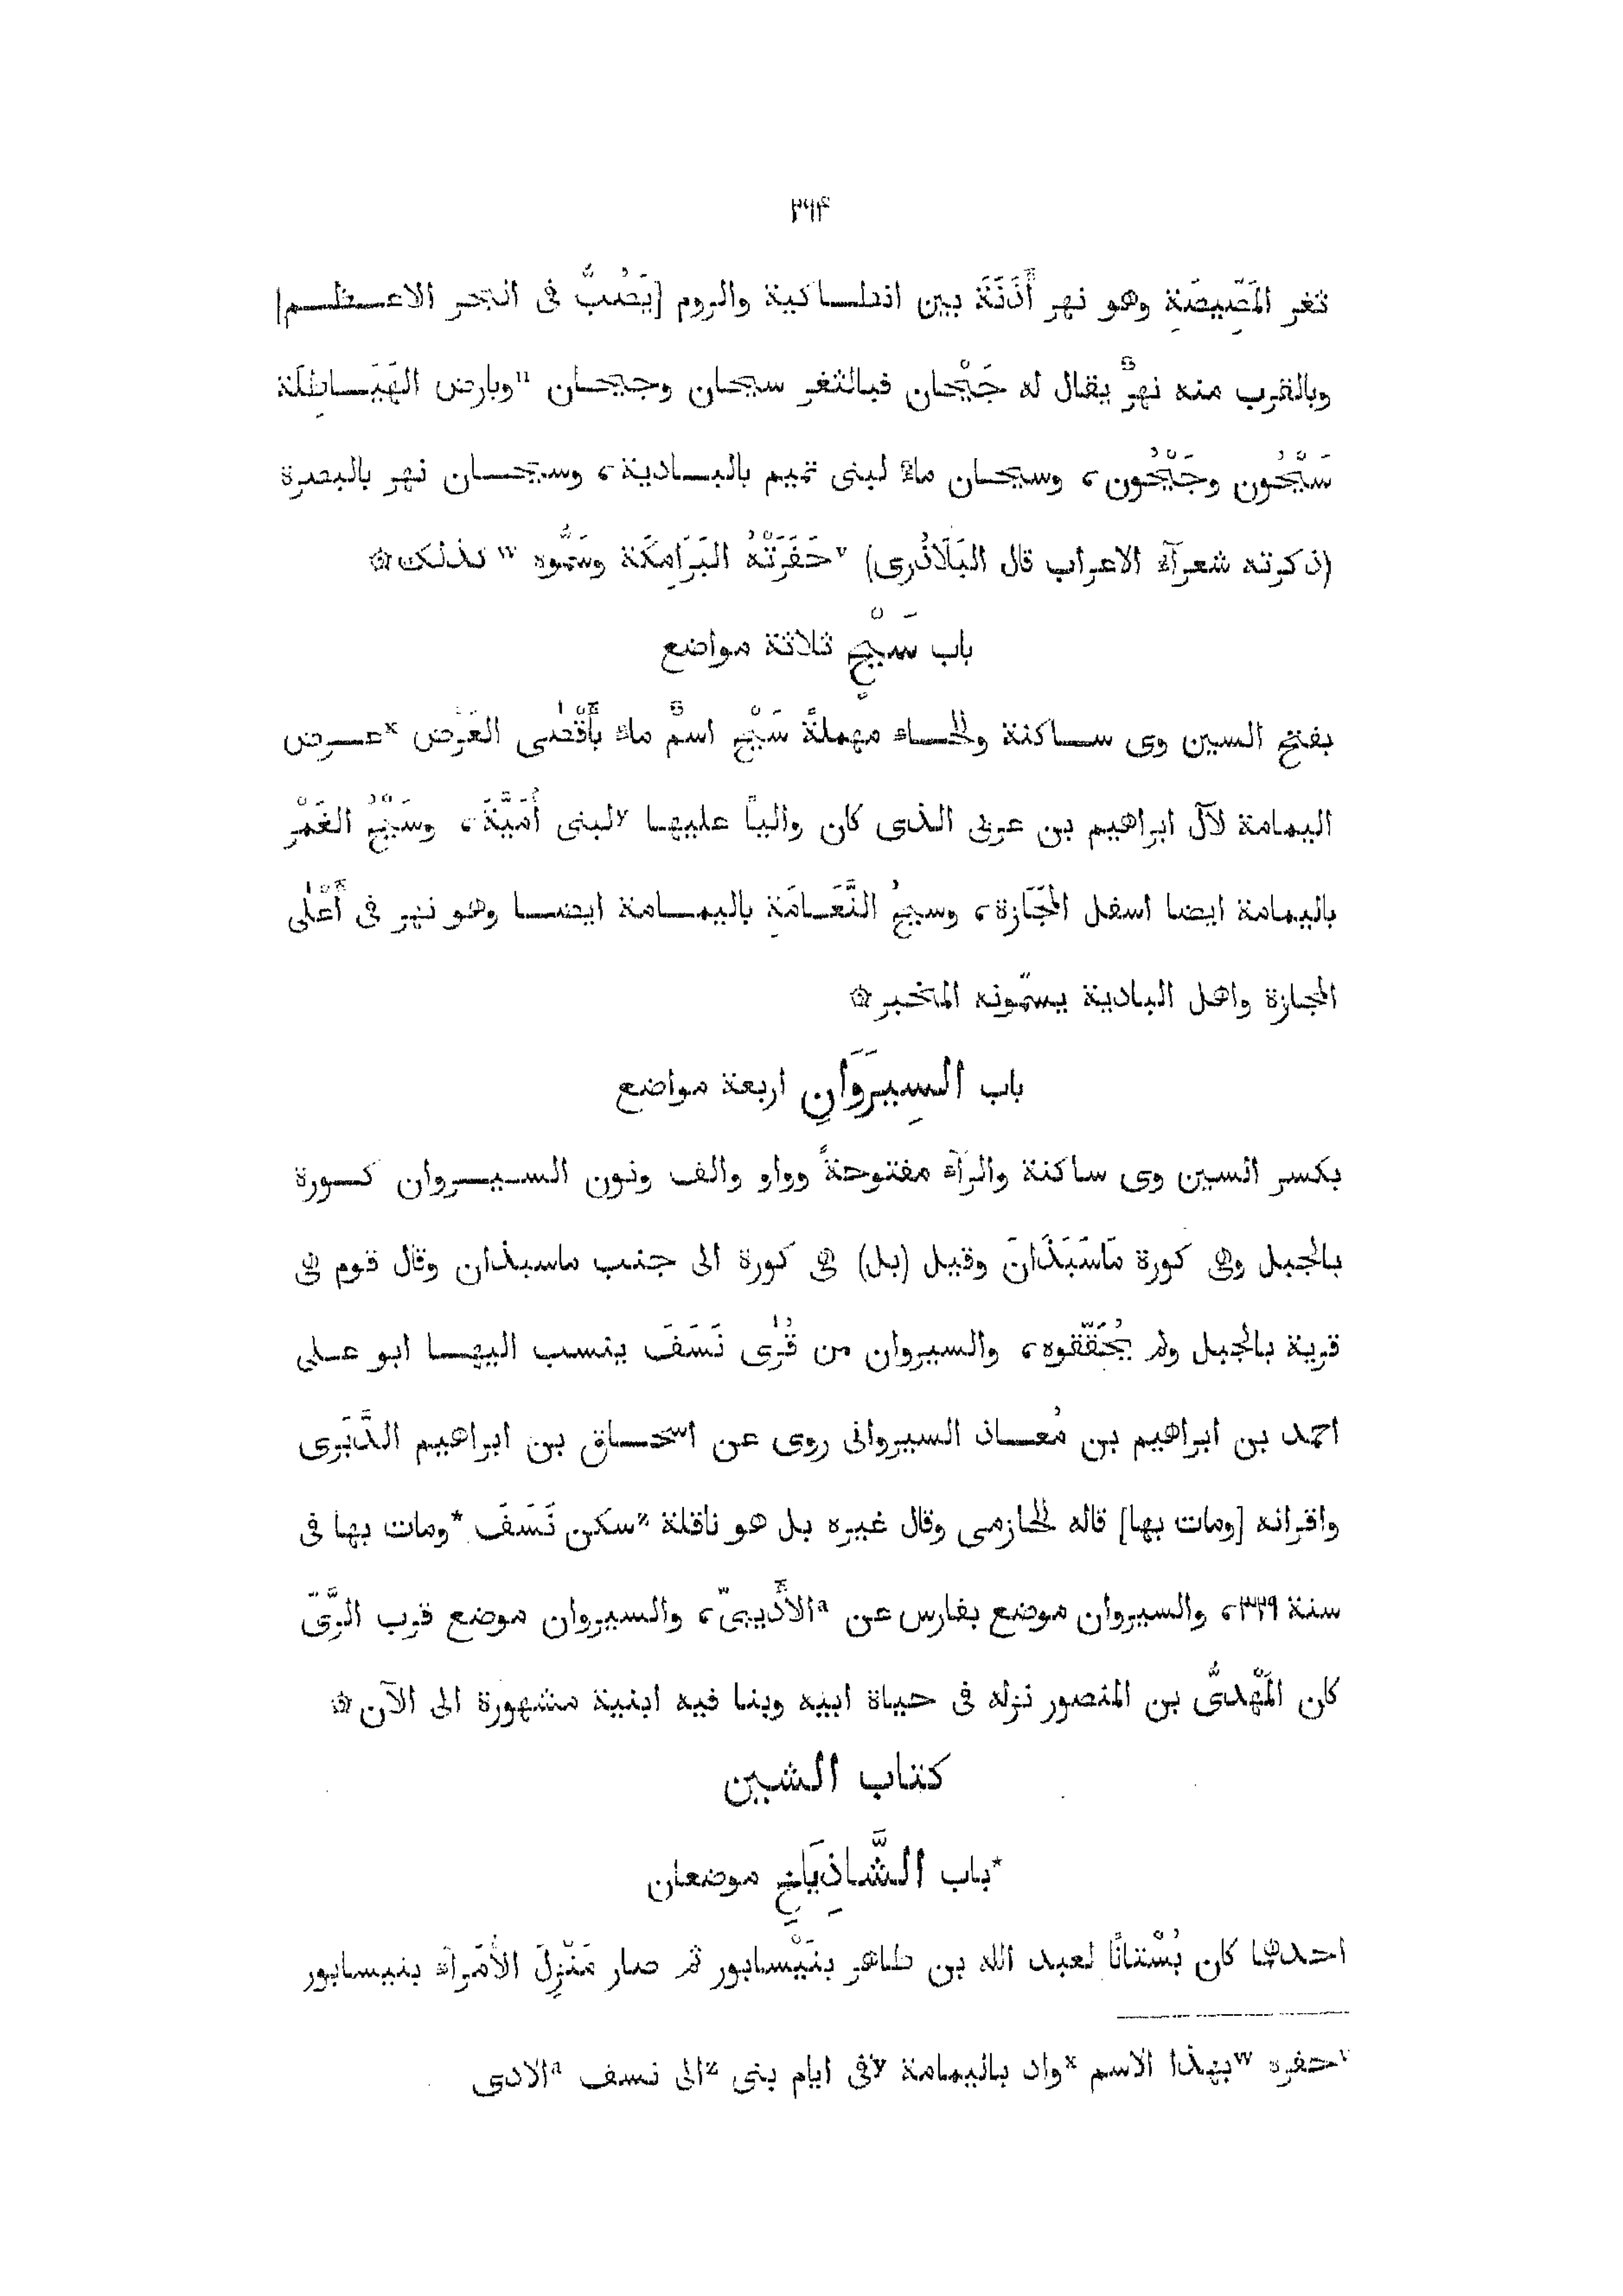 ٣٦۴
ثغر المَصِّيصَةِ وهو نهر أَذَنَةَ بين انطاكية والروم [يَصُبُّ فى البحر الاعظم]
وبالقرب منه نهرٌ يقال له جَيْحان فبالثغر سيحان وجيحان ᵘوبارض الهَيَاطِلَة
سَيْحُون وجَيْحُون، وسيحان مآء لبنى تميم بالبادية، وسيحان نهر بالبصرة
(ذكرته شعرآء الاعراب قال البَلَاذُرى) ᵛحَفَرَتْهُ البَرَامِكَة وسَمُّوه ʷكذلك ۞
باب سَيْحٍ ثلاثة مواضع
بفتح السين وى ساكنة والحاء مهملةً سَيْح اسمُ ماء بأَقْصٰى العَرْض ˣعرض
اليمامة لآل ابراهيم بن عربى الذى كان والياً عليها ʸلبنى أُمَيَّةَ، وسَيْحُ الغَمْر
باليمامة ايضا اسفل المَجَازة، وسيحُ النَّعَامَةِ باليمامة ايضا وهو نهر فى أَعْلٰى
المجازة واهل البادية يسمّونه المخبر ۞
باب السِيرَوَانِ اربعة مواضع
بكسر السين وى ساكنة والرآء مفتوحةً وواو والف ونون السيروان كورة
بالجبل وهى كورة مَاسَبَذَانَ وقيل (بل) هى كورة الى جنب ماسبذان وقال قوم هى
قرية بالجبل ولم يُحَقّقوه، والسيروان من قُرٰى نَسَفَ ينسب اليها ابو على
احمد بن ابراهيم بن مُعاذ السيروانى روى عن اسحاق بن ابراهيم الدَّبَرى
واقرانه [ومات بها] قاله الحازمى وقال غيره بل هو ناقلة ᶻسكن نَسَفَ *ومات بها فى
سنة ٣٢٩، والسيروان موضع بفارس عن ᵃالأَديبىّ، والسيروان موضع قرب الرَّىّ
كان المَهْدىُّ بن المنصور نزله فى حياة ابيه وبنا فيه ابنية مشهورة الى الآن ۞
كتاب الشين
*باب الشَّاذِيَاخِ موضعان
احدهما كان بُسْتانًا لعبد الله بن طاهر بنَيْسابور ثم صار مَنْزِلَ الأُمَرآء بنيسابور
ᵛحفره ʷبهذا الاسم ˣواد باليمامة ʸفى ايام بنى ᶻالى نسف ᵃالادى